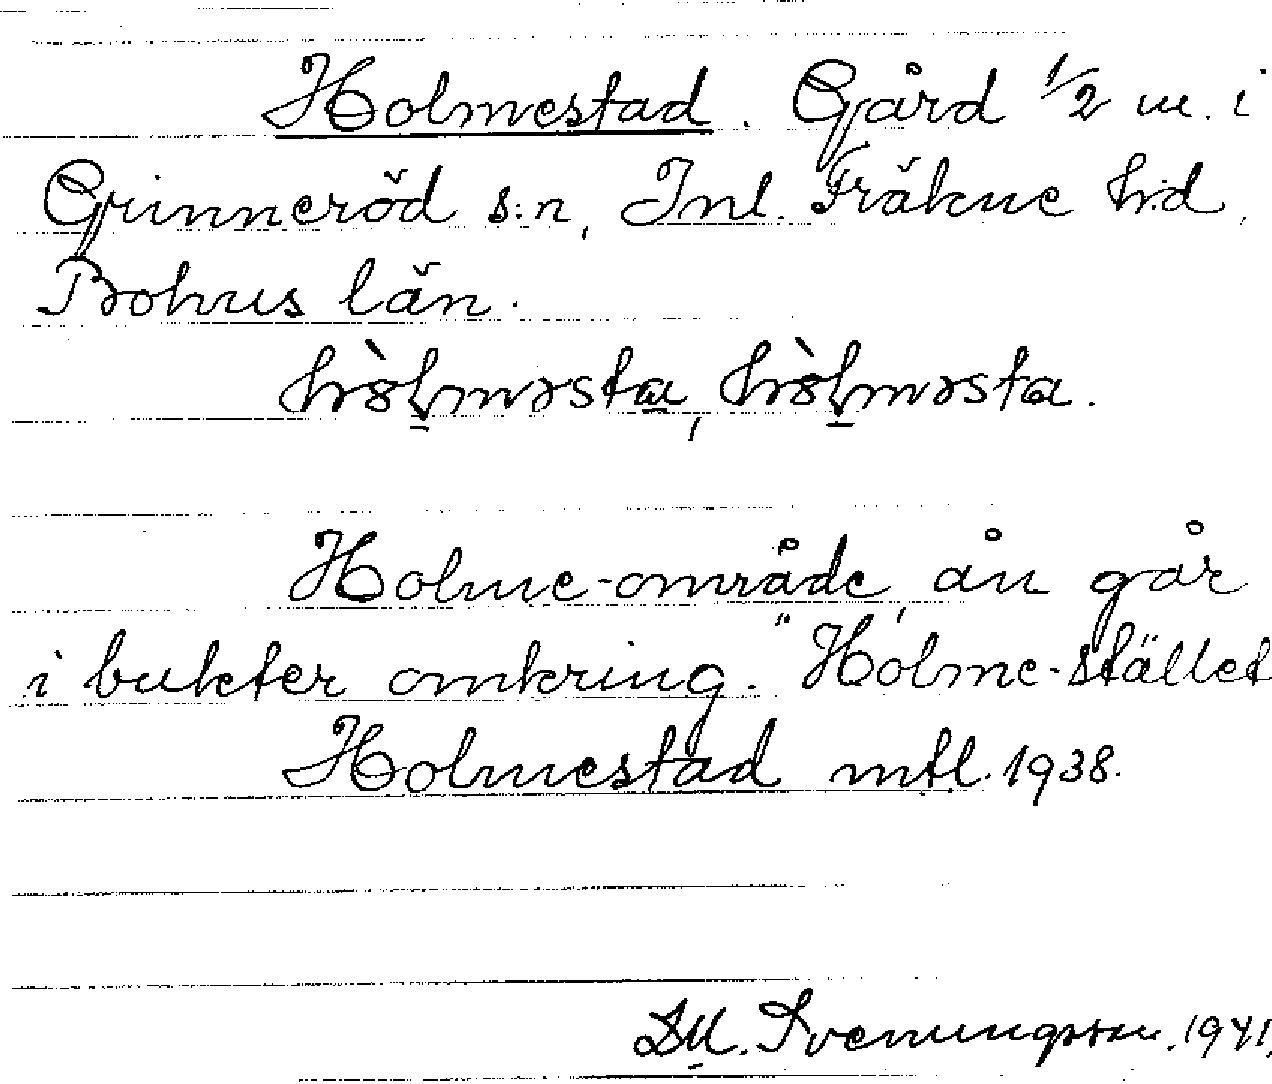 Holmestad. Gård 1/2 m. i
Grinneröd s:n, Inl. Fräkne h:d,
Bohus län.
hòlməsta, hòlməsta.
Holme-område, ån går
i bukter omkring. "Holme-stället
Holmestad mtl. 1938.
Svenungsson. 1941.